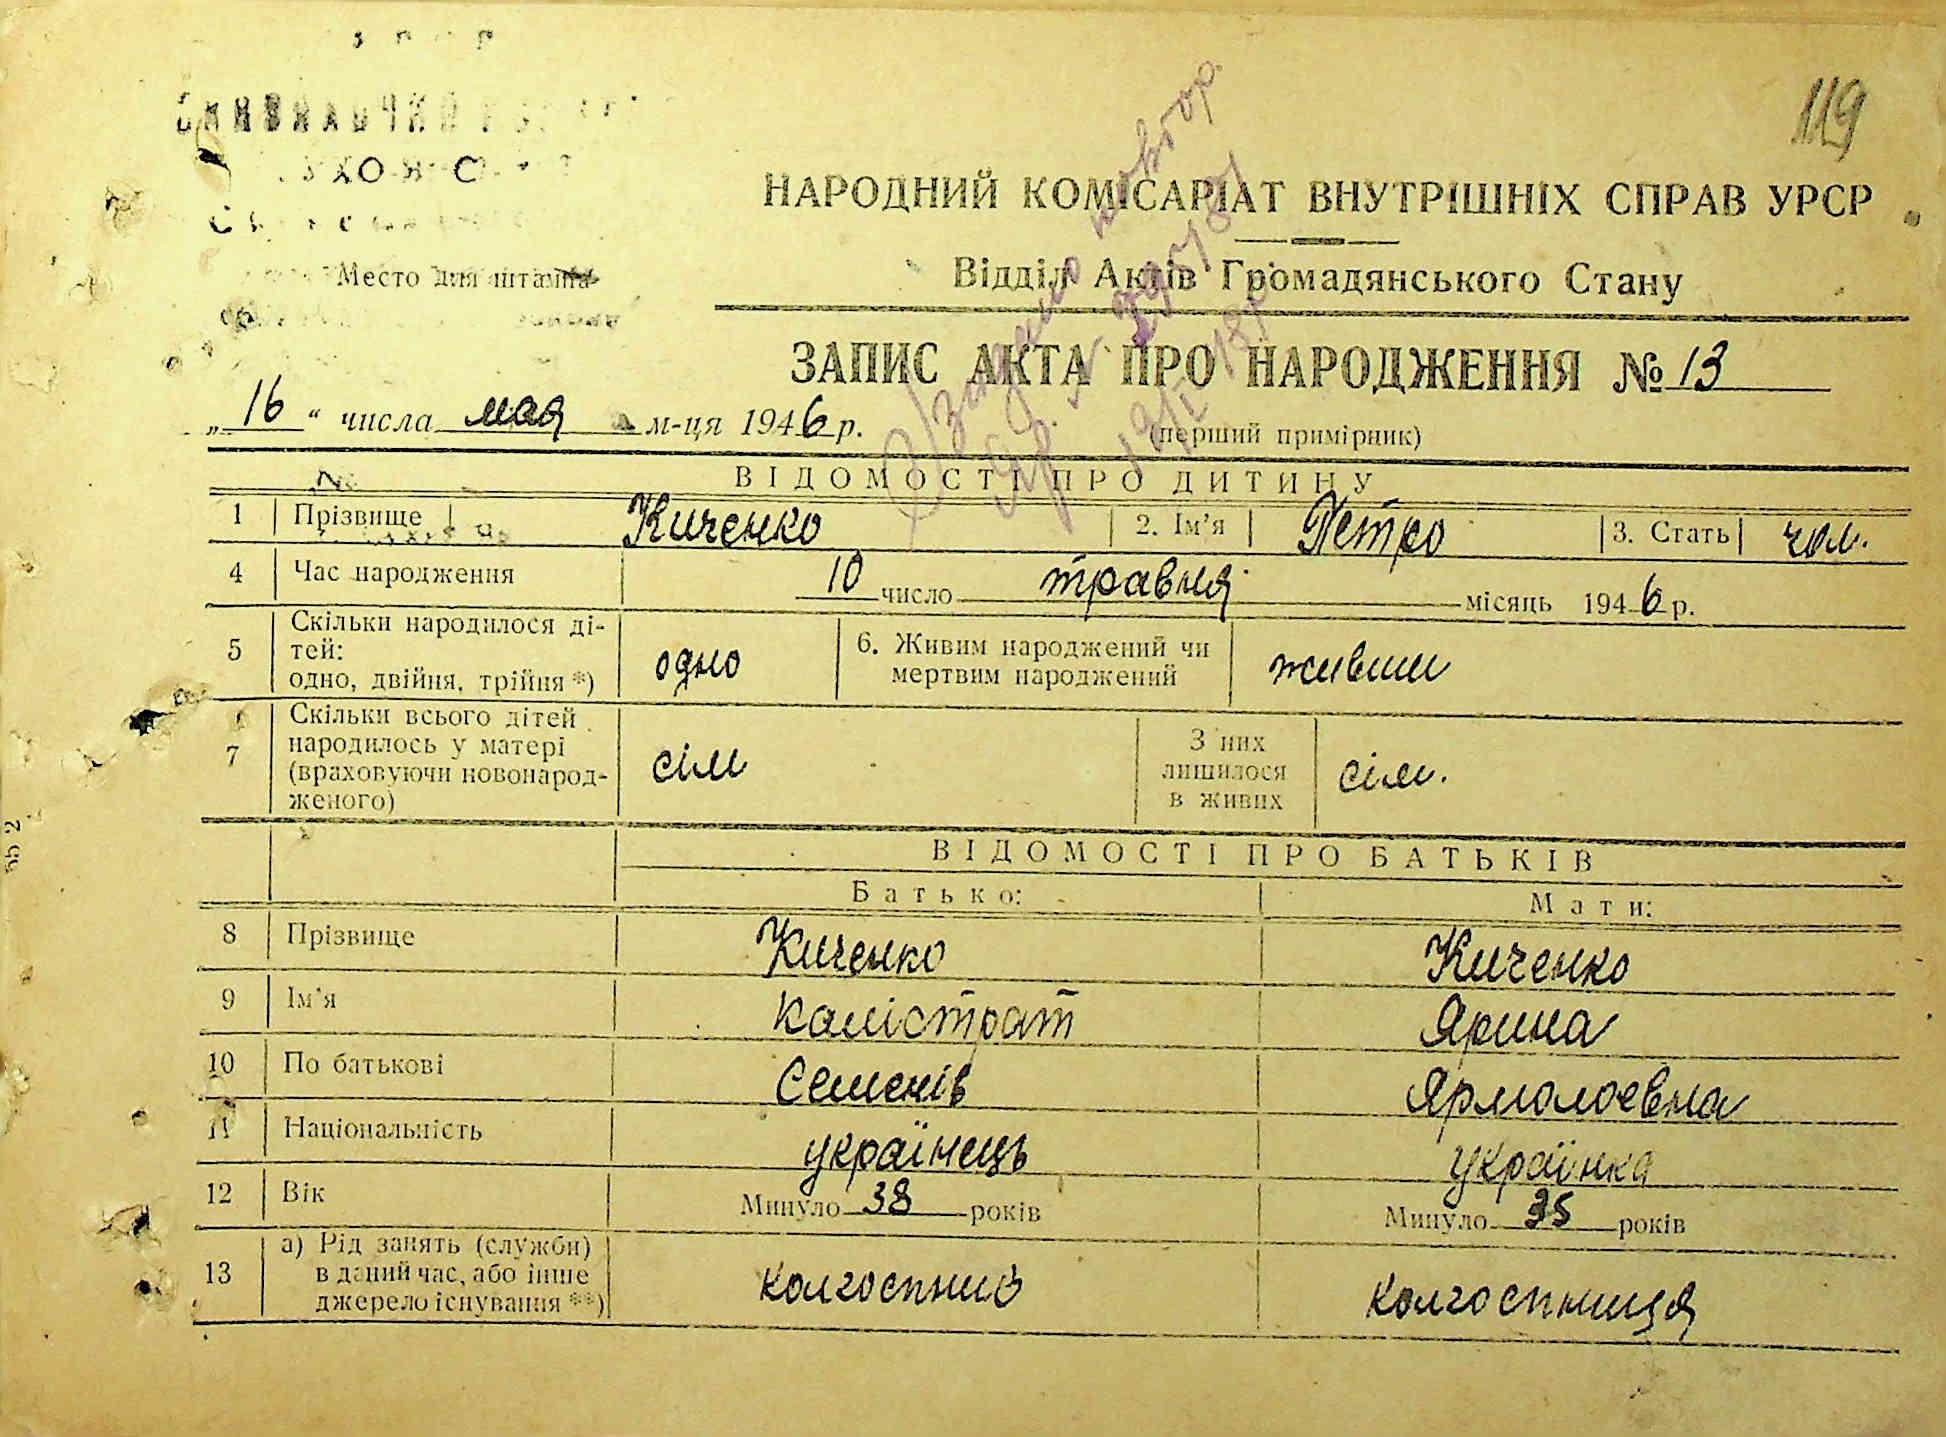 119
НАРОДНИЙ КОМІСАРІАТ ВНУТРІШНІХ СПРАВ УРСР
Место для штампа
Відділ Актів Громадянського Стану
ЗАПИС АКТА ПРО НАРОДЖЕННЯ № 13
„16“ числа мая м-ця 1946 р.
(перший примірник)
ВІДОМОСТІ ПРО ДИТИНУ
1 Прізвище Киченко 2. Ім'я Петро 3. Стать чол.
4 Час народження 10 число травня місяць 1946 р.
5 Скільки народилося ді-
тей:
одно, двійня, трійня *) одно 6. Живим народжений чи
мертвим народжений живим
7 Скільки всього дітей
народилось у матері
(враховуючи новонарод-
женого) сім З них
лишилося
в живих сім.
ВІДОМОСТІ ПРО БАТЬКІВ
Батько: Мати:
8 Прізвище Киченко Киченко
9 Ім'я Калістрат Ярина
10 По батькові Семенів Ярмолоевна
11 Національність українець українка
12 Вік Минуло 38 років Минуло 35 років
13 а) Рід занять (служби)
в даний час, або інше
джерело існування **) колгоспник колгоспниця